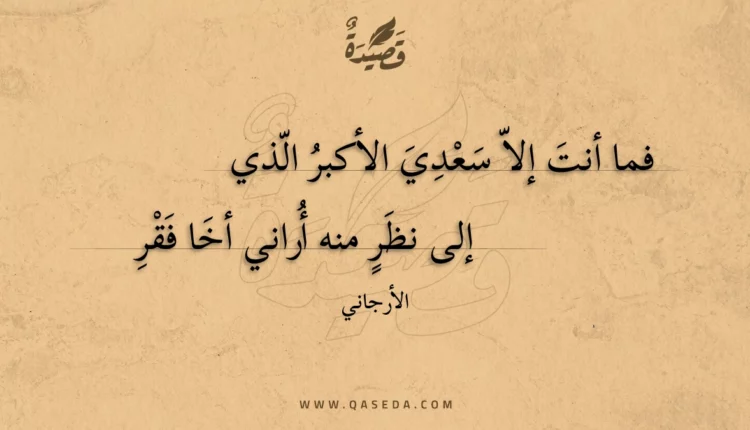 قَصِيْدَةٌ
فما أنتَ إلاّ سَعْدِيَ الأكبرُ الّذي
إلى نظَرٍ منه أُراني أخَا فَقْرِ
الأرجاني
WWW.QASEDA.COM